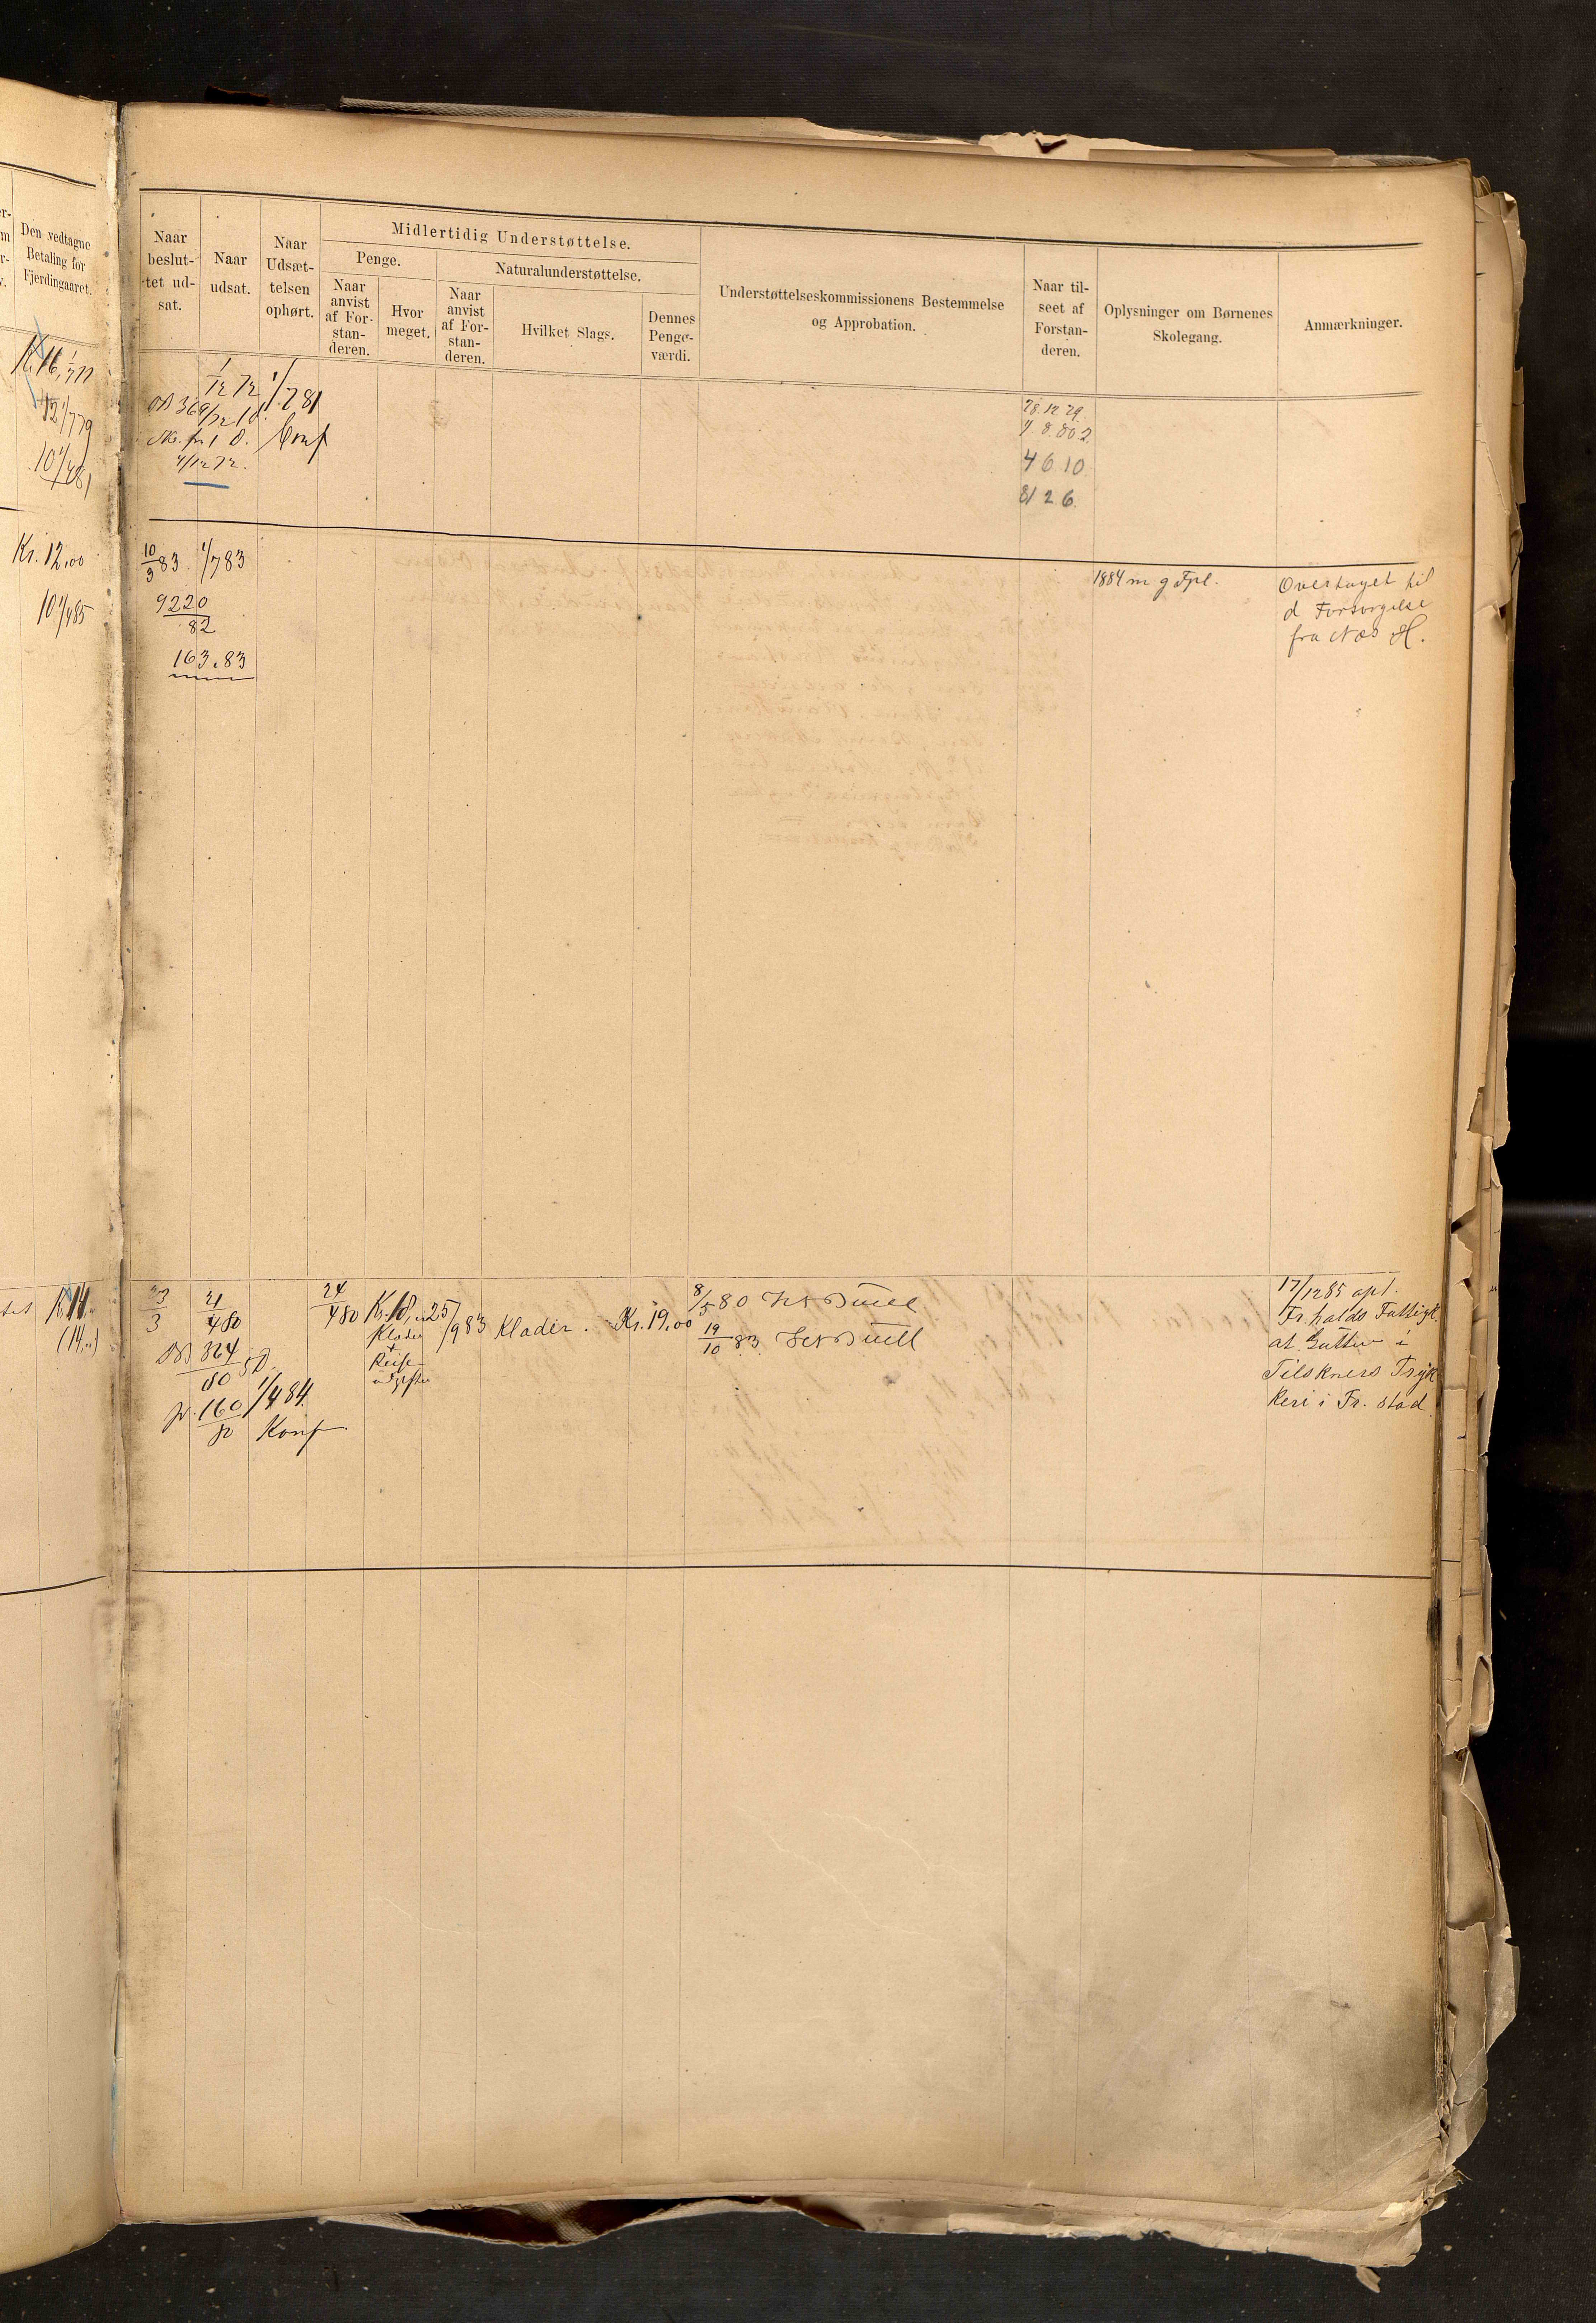 Den vedtagne
Betaling for
Fjerdingaaret.
Naar
beslut-
tet ud-
sat.
Naar
udsat.
Naar
Udsæt-
telsen
ophørt.
Midlertidig Understøttelse.
Penge.
Naar
anvist
af For-
stan-
deren.
Hvor
meget.
Naturalunderstøttelse.
Naar
anvist
af For-
stan-
deren.
Hvilket Slags.
Dennes
Penge-
værdi.
Understøttelseskommissionens Bestemmelse
og Approbation.
Naar til-
seet af
Forstan-
deren.
Oplysninger om Børnenes
Skolegang.
Anmærkninger.
12 1/7 79
10 1/4 81
1/12 72
4/12 72.
1/7 81
Conf
28.12.79.
4 6 10
81 2 6
Kr. 12,00
10 1/4 85
10/3 83.
1/7 83
9220
82
163.83
1884 m g Fpl.
Overtaget til
d Forsorgelse
fra Næs H.
23/3
21/4 80
324
80
160
80
1/4 84.
Konf
24/4 80
Klæder
+
Reise-
udgifter
25/9 83
Klæder.
Kr. 19,00
8/5 80
19/10 83.
17/12 85 apl.
Fr.halds Fattigk.
at Gutten i
Tilskners Tryk
keri i Fr. stad.